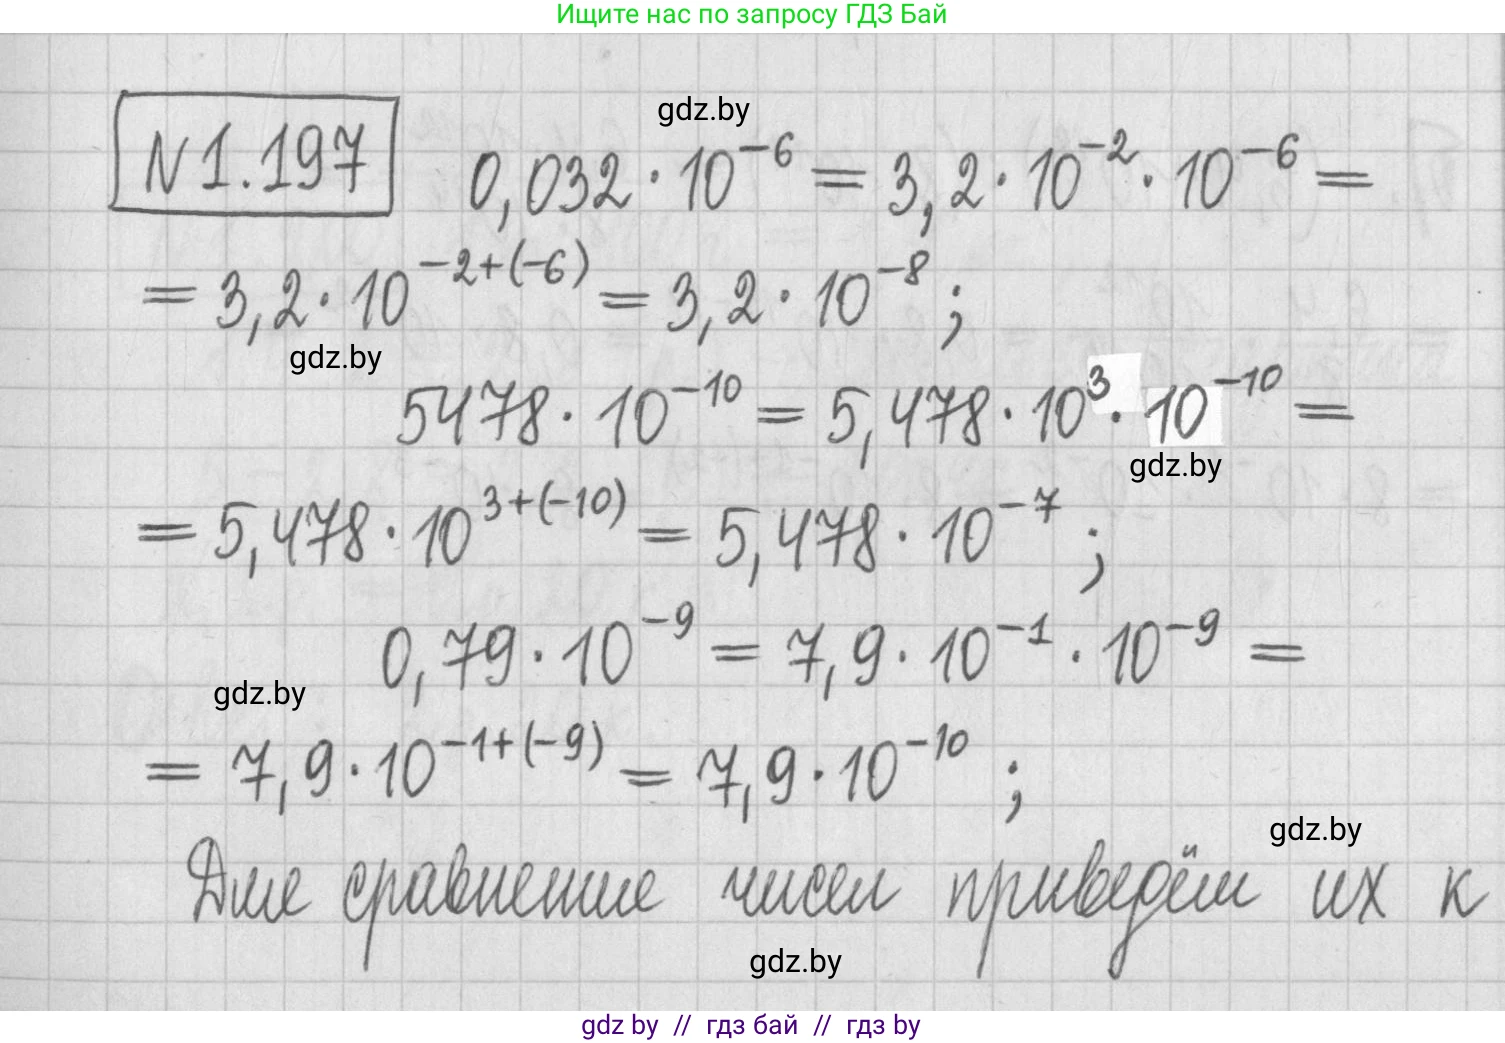 Ищите нас по запросу ГДЗ Бай
gdz.by
N 1.197 0,032 · 10⁻⁶ = 3,2 · 10⁻² · 10⁻⁶ =
= 3,2 · 10⁻²⁺⁽⁻⁶⁾ = 3,2 · 10⁻⁸ ;
gdz.by
5478 · 10⁻¹⁰ = 5,478 · 10³ · 10⁻¹⁰ =
gdz.by
= 5,478 · 10³⁺⁽⁻¹⁰⁾ = 5,478 · 10⁻⁷ ;
0,79 · 10⁻⁹ = 7,9 · 10⁻¹ · 10⁻⁹ =
gdz.by
= 7,9 · 10⁻¹⁺⁽⁻⁹⁾ = 7,9 · 10⁻¹⁰ ;
gdz.by
Для сравнение чисел приведём их к
gdz.by
gdz by // гдз бай // гдз by